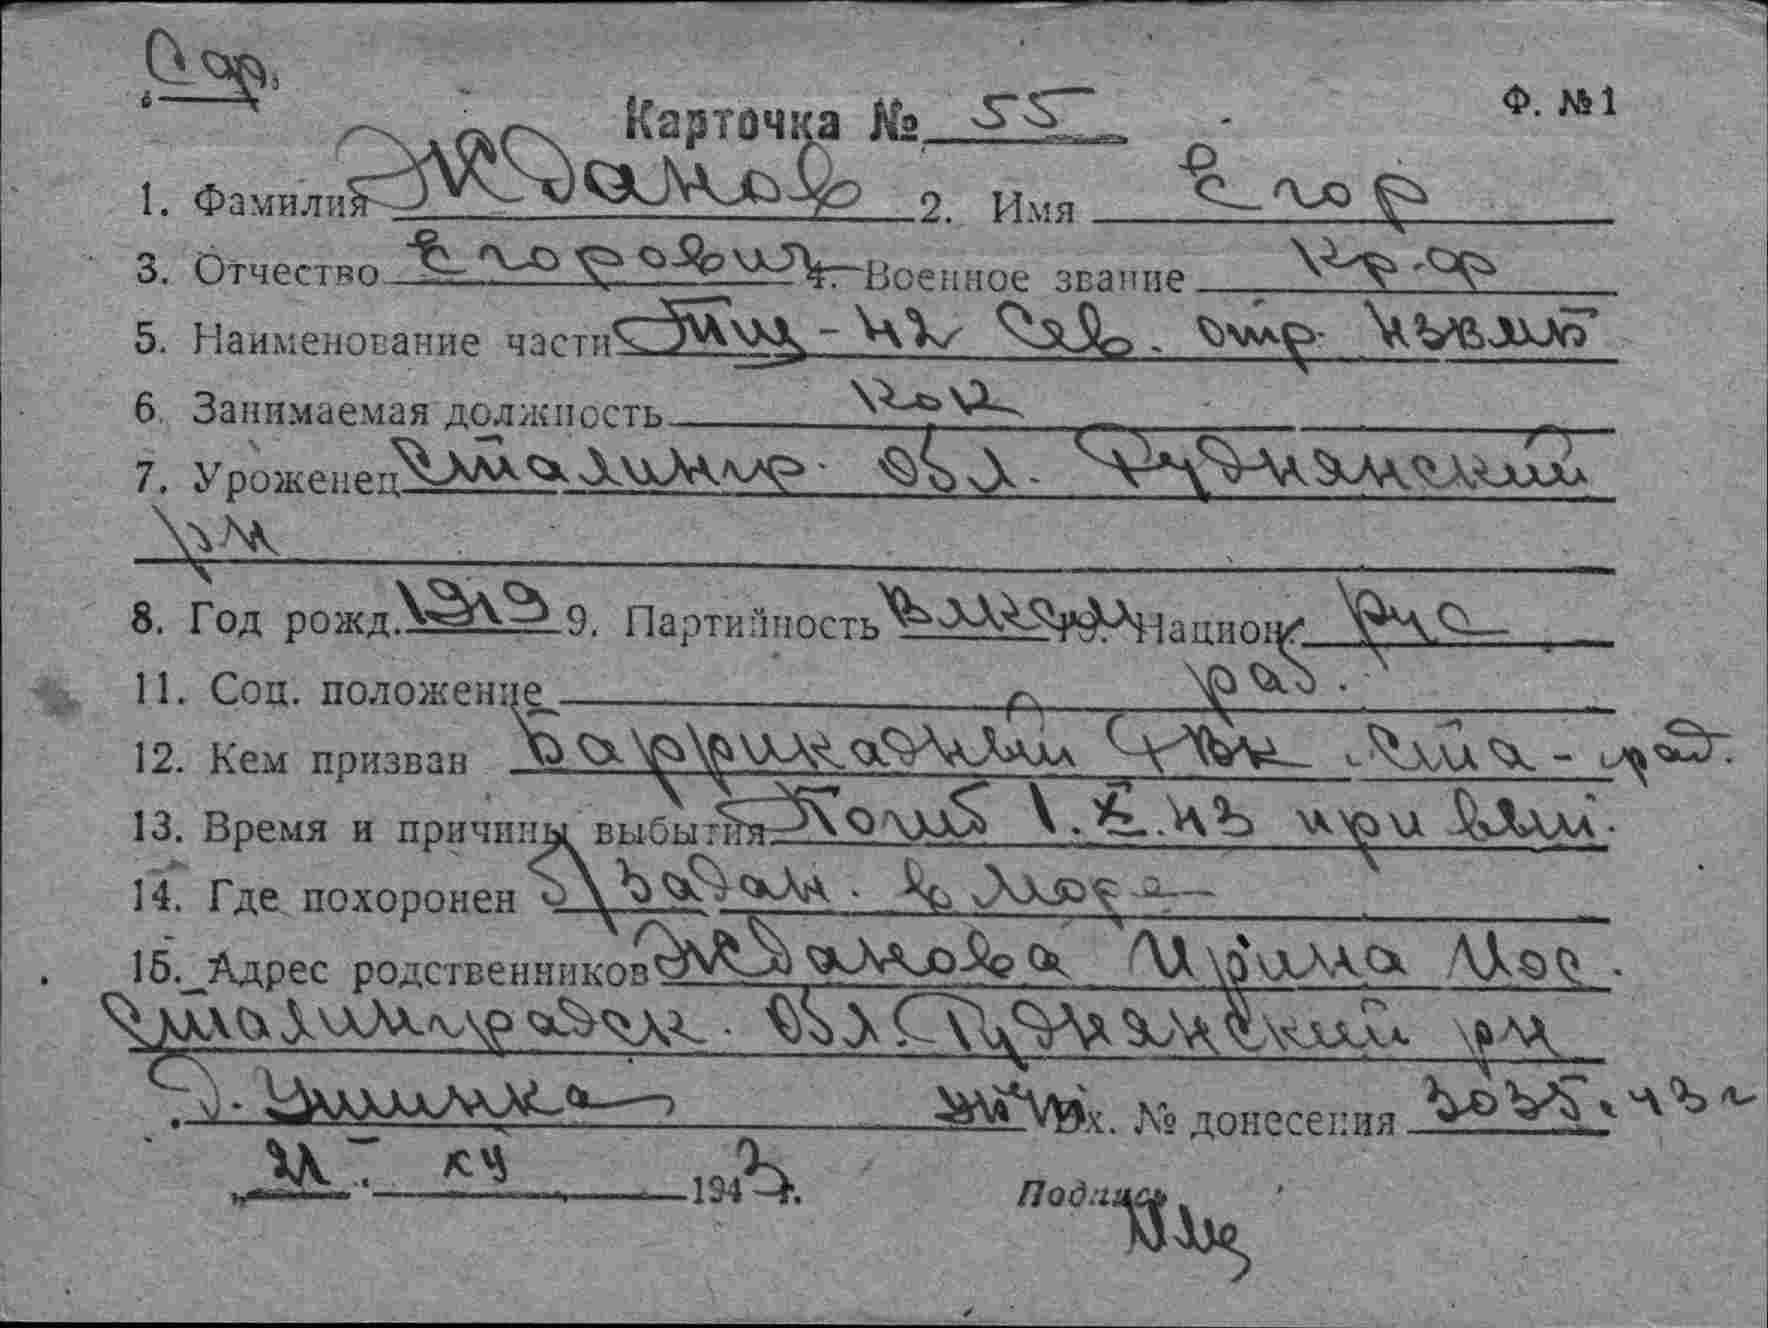 Сар.
Карточка № 55 Ф. №1
1. Фамилия Жданов 2. Имя Егор
3. Отчество Егорович 4. Военное звание кр-ац
5. Наименование части
6. Занимаемая должность
7. Уроженец Сталингр. обл. Руднянский
рн
8. Год рожд. 1919 9. Партийность Национ. рус
11. Соц. положение раб.
12. Кем призван Баррикадный РВК Ста-град.
13. Время и причины выбытия Погиб 1.X.43 при вып.
14. Где похоронен б/задан. в море
15. Адрес родственников Жданова Ирина Мос.
Сталинградск. обл. Руднянский рн
д. Ушинка Вх. № донесения 3035. 43 г
„21“. 1943 г.
Подпись